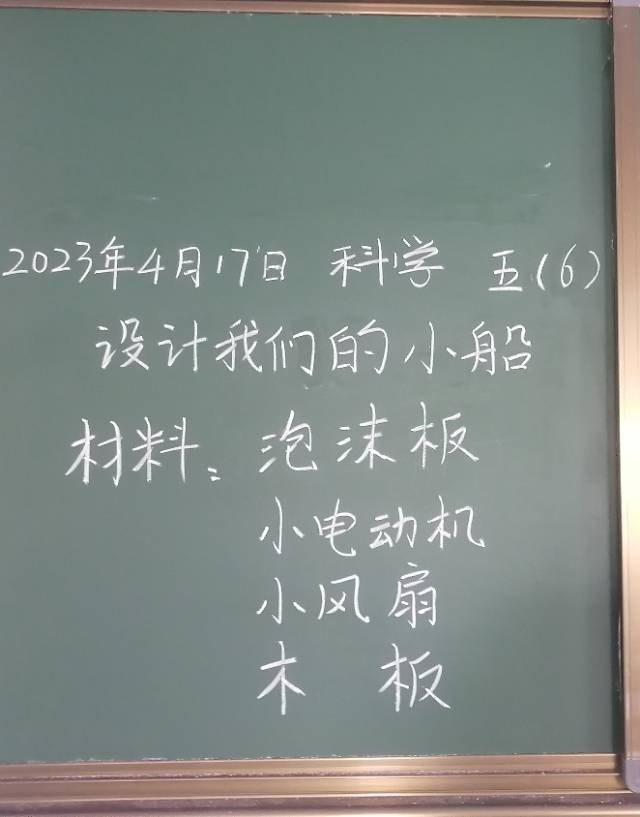 2023年4月17日 科学 五(6)
设计我们的小船
材料: 泡沫板
小电动机
小风扇
木 板